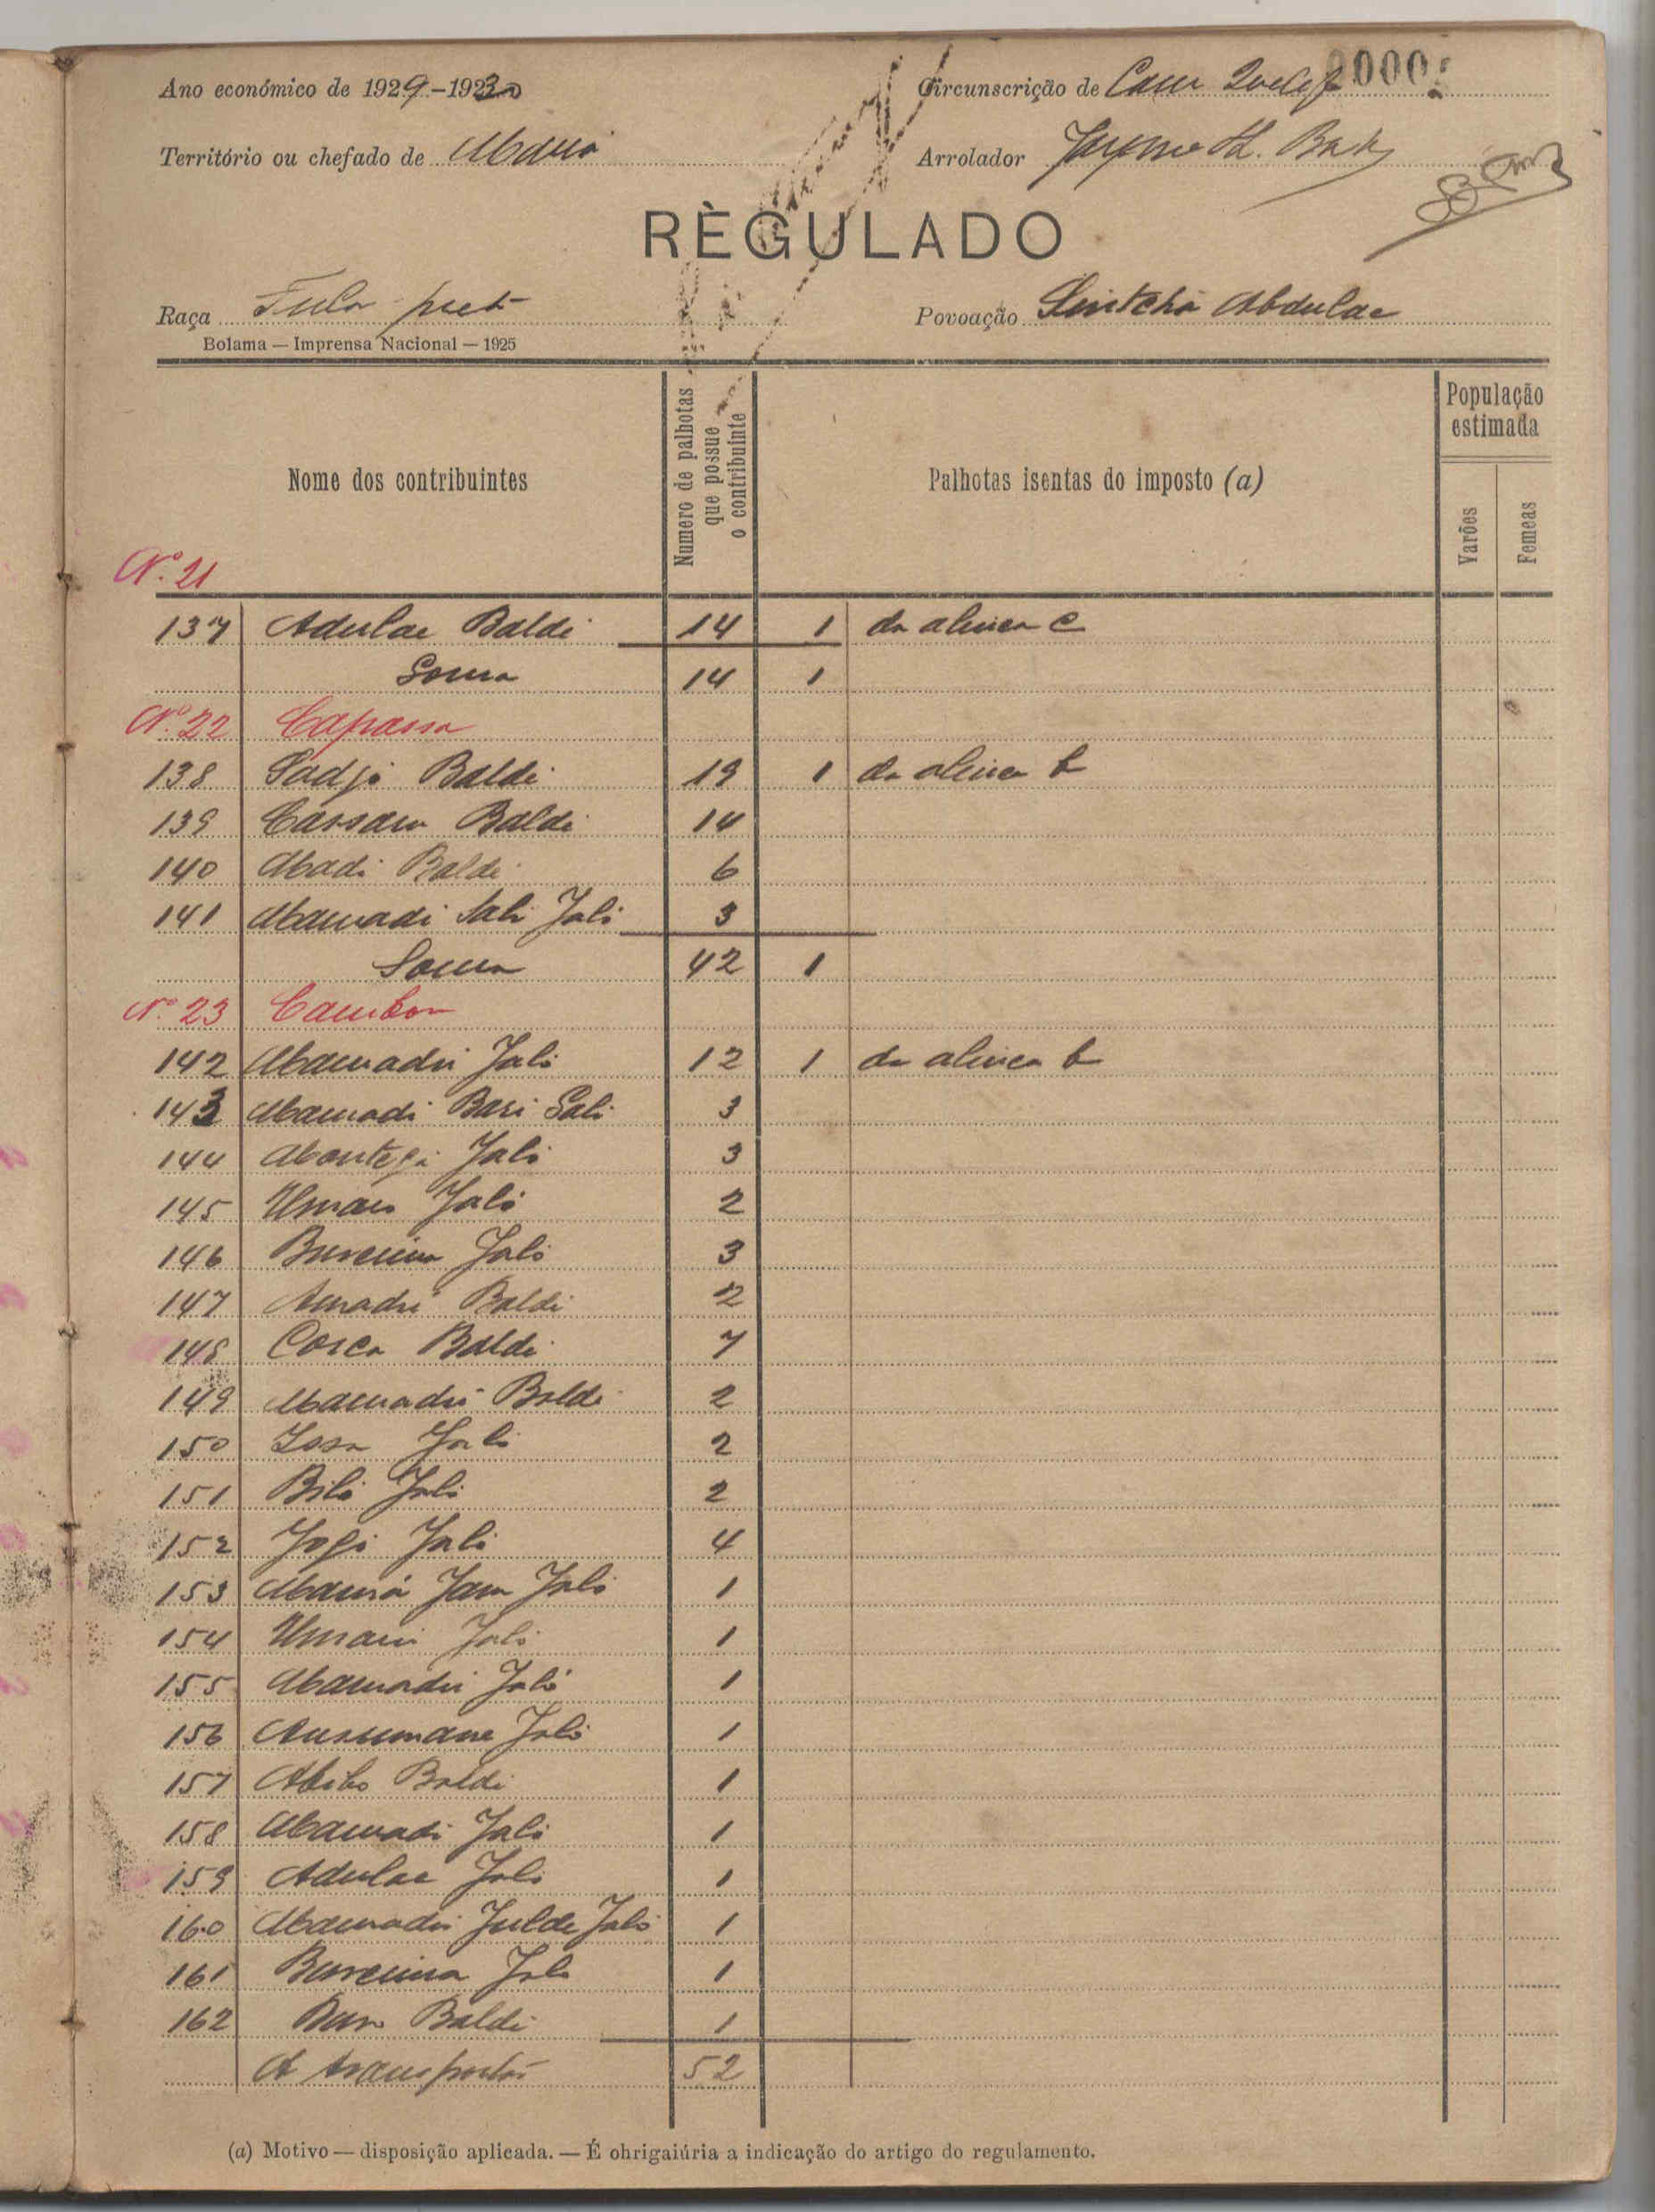 Ano económico de 1929-1930 Circunscrição de
Território ou chefado de Maná Arrolador
RÈGULADO
Raça Fula preto Povoação Sintchã Abdulae
Bolama — Imprensa Nacional — 1925
Nome dos contribuintes
Numero de palhotas que possue o contribuinte
Palhotas isentas do imposto (a)
População estimada
Varões
Femeas
Nº 21
137 Adulae Baldé 14 1 da alinea c
Soma 14 1
Nº 22 Capassa
138 Sadjo Baldé 19 1 da alinea b
139 Cassam Baldé 14
140 Madi Baldé 6
141 Mamadi Sali Jaló 3
Soma 42 1
Nº 23 Cambor
142 Mamadú Jaló 12 1 da alinea b
143 Mamadi Bari Sali 3
144 Jaló 3
145 Umaro Jaló 2
146 Bureima Jaló 3
147 Amadú Baldé 2
148 Baldé 7
149 Mamadú Baldé 2
150 Issa Jaló 2
151 Biló Jaló 2
152 Jaló 4
153 Jaló 1
154 Jaló 1
155 Mamadú Jaló 1
156 Ansumane Jaló 1
157 Baldé 1
158 Mamadi Jaló 1
159 Adulae Jaló 1
160 Mamadú Julde Jaló 1
161 Bureima Jaló 1
162 Baldé 1
A transportar 52
(a) Motivo — disposição aplicada. — É ohrigaiúria a indicação do artigo do regulamento.